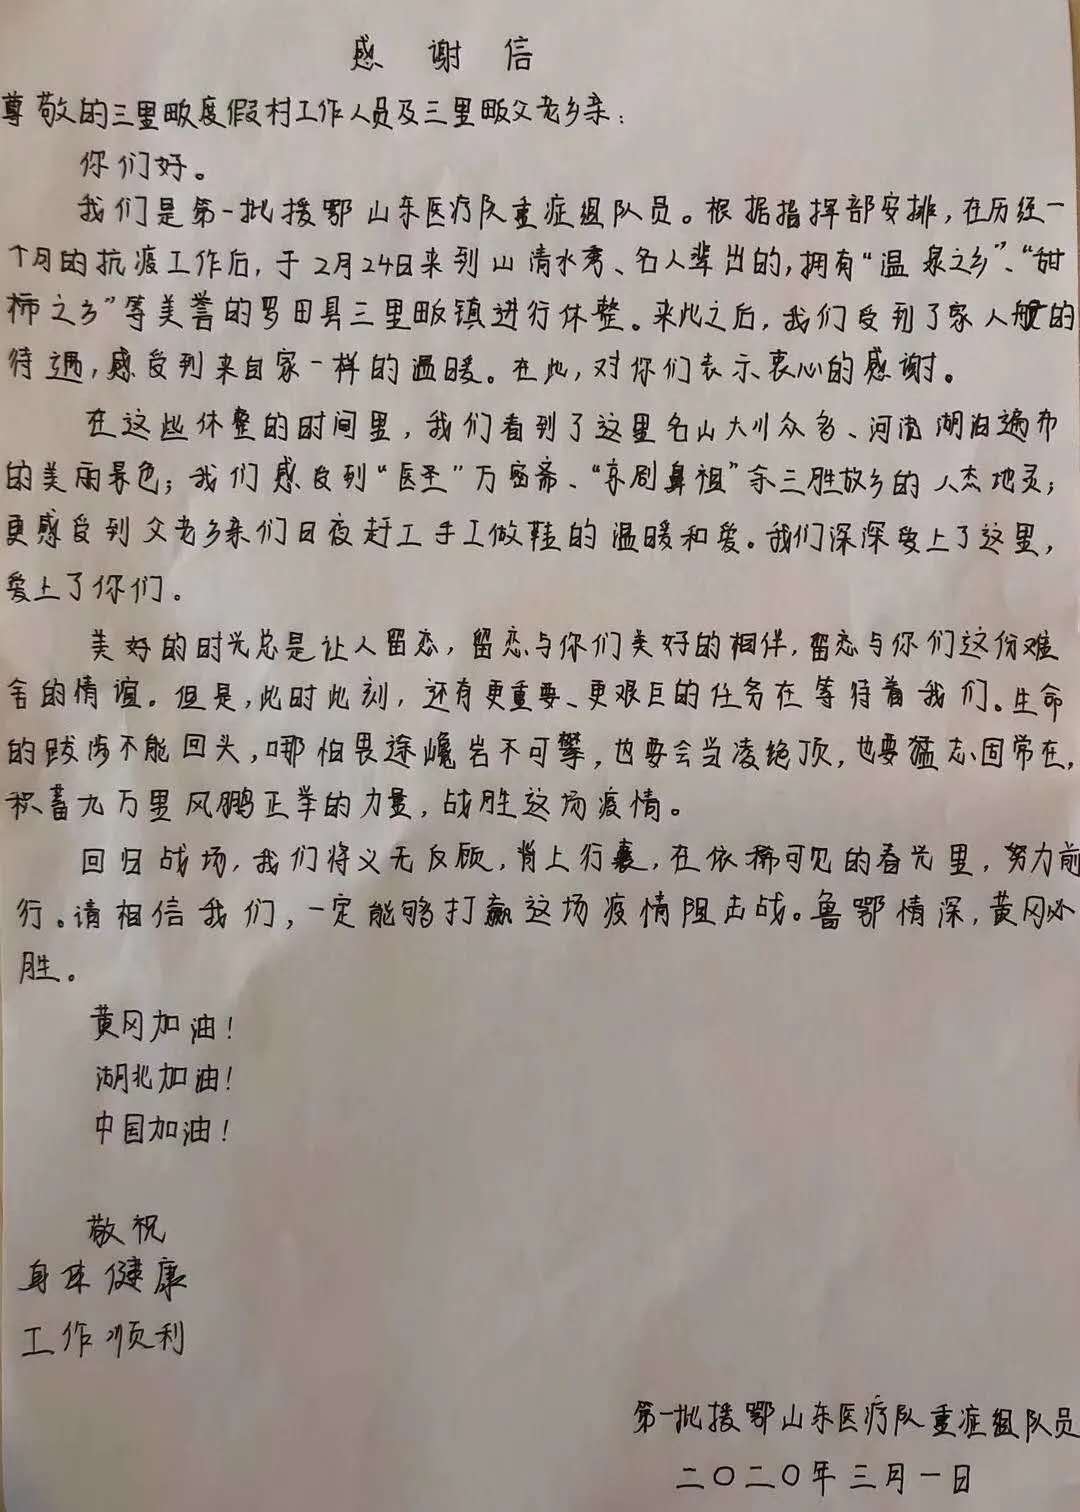 感谢信
尊敬的三里畈度假村工作人员及三里畈父老乡亲：
你们好。
我们是第一批援鄂山东医疗队重症组队员。根据指挥部安排，在历经一
个月的抗疫工作后，于2月24日来到山清水秀、名人辈出的，拥有“温泉之乡”、“甜
柿之乡”等美誉的罗田县三里畈镇进行休整。来此之后，我们受到了家人般的
待遇，感受到来自家一样的温暖。在此，对你们表示衷心的感谢。
在这些休整的时间里，我们看到了这里名山大川众多、河流湖泊遍布
的美丽景色；我们感受到“医圣”万密斋、“京剧鼻祖”余三胜故乡的人杰地灵；
更感受到父老乡亲们日夜赶工手工做鞋的温暖和爱。我们深深爱上了这里，
爱上了你们。
美好的时光总是让人留恋，留恋与你们美好的相伴，留恋与你们这份难
舍的情谊。但是，此时此刻，还有更重要、更艰巨的任务在等待着我们。生命
的跋涉不能回头，哪怕畏途巉岩不可攀，也要会当凌绝顶，也要猛志固常在，
积蓄九万里风鹏正举的力量，战胜这场疫情。
回归战场，我们将义无反顾，背上行囊，在依稀可见的春光里，努力前
行。请相信我们，一定能够打赢这场疫情阻击战。鲁鄂情深，黄冈必
胜。
黄冈加油！
湖北加油！
中国加油！
敬祝
身体健康
工作顺利
第一批援鄂山东医疗队重症组队员
二〇二〇年三月一日